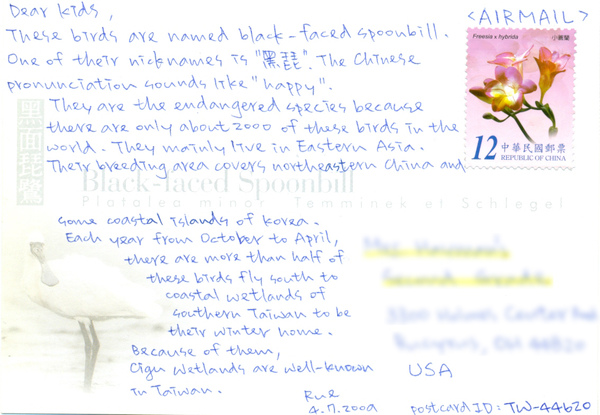 Dear kids,
<AIRMAIL>
These birds are named black-faced spoonbill.
One of their nicknames is "黑琵". The Chinese
pronunciation sounds like "happy".
They are the endangered species because
there are only about 2000 of these birds in the
world. They mainly live in Eastern Asia.
Their breeding area covers northeastern China and
some coastal islands of Korea.
Each year from October to April,
there are more than half of
these birds fly south to
coastal wetlands of
southern Taiwan to be
their winter home.
Because of them,
Cigu Wetlands are well-known
in Taiwan.
Rue
4.7.2009
Freesia x hybrida
小蒼蘭
12
中華民國郵票
REPUBLIC OF CHINA
黑面琵鷺
Black-faced Spoonbill
Platalea minor Temminck et Schlegel
USA
postcard ID: TW-44620